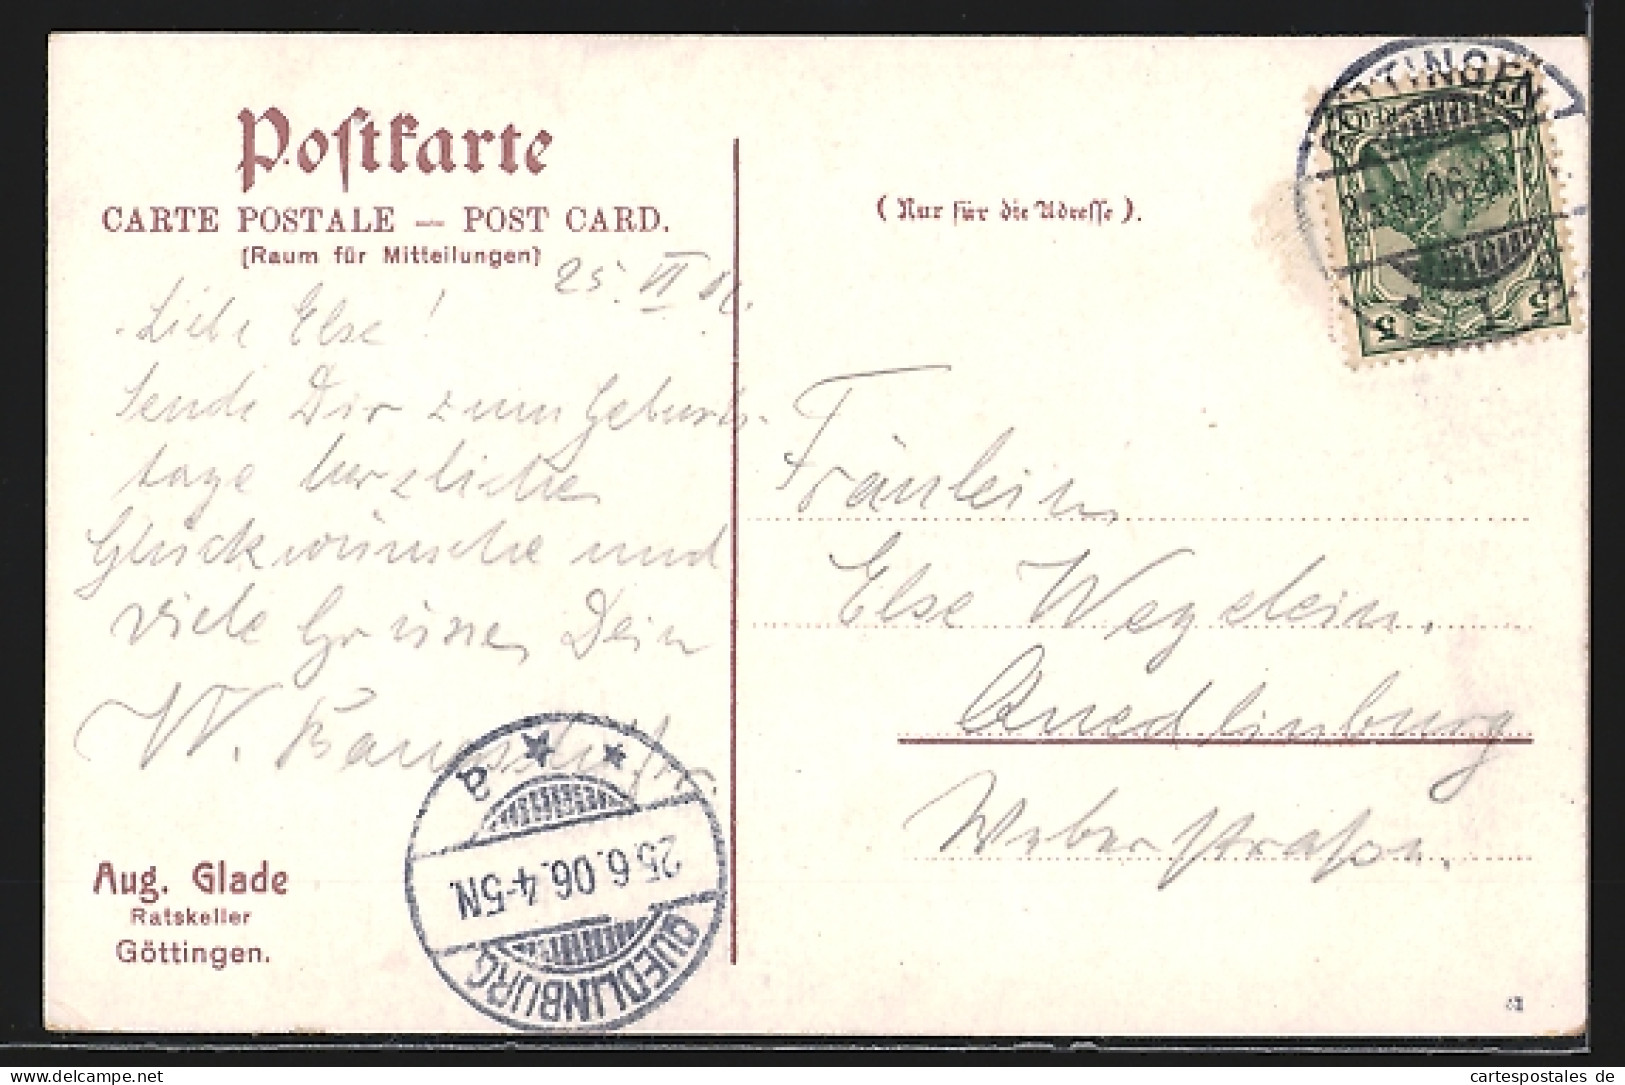 Postkarte
CARTE POSTALE — POST CARD.
(Raum für Mitteilungen)
25. VI 06.
Liebe Else!
Sende Dir zum Geburts-
tage herzliche
Glückwünsche und
viele Grüsse, Dein
W.
Aug. Glade
Ratskeller
Göttingen.
QUEDLINBURG
25.6.06.4-5N.
a
(Nur für die Adresse).
GÖTTINGEN
25.6.06
1
5
5
Fräulein
Else Wegelein.
Quedlinburg
Weberstrasse.
cartespostales de
delcampe.net